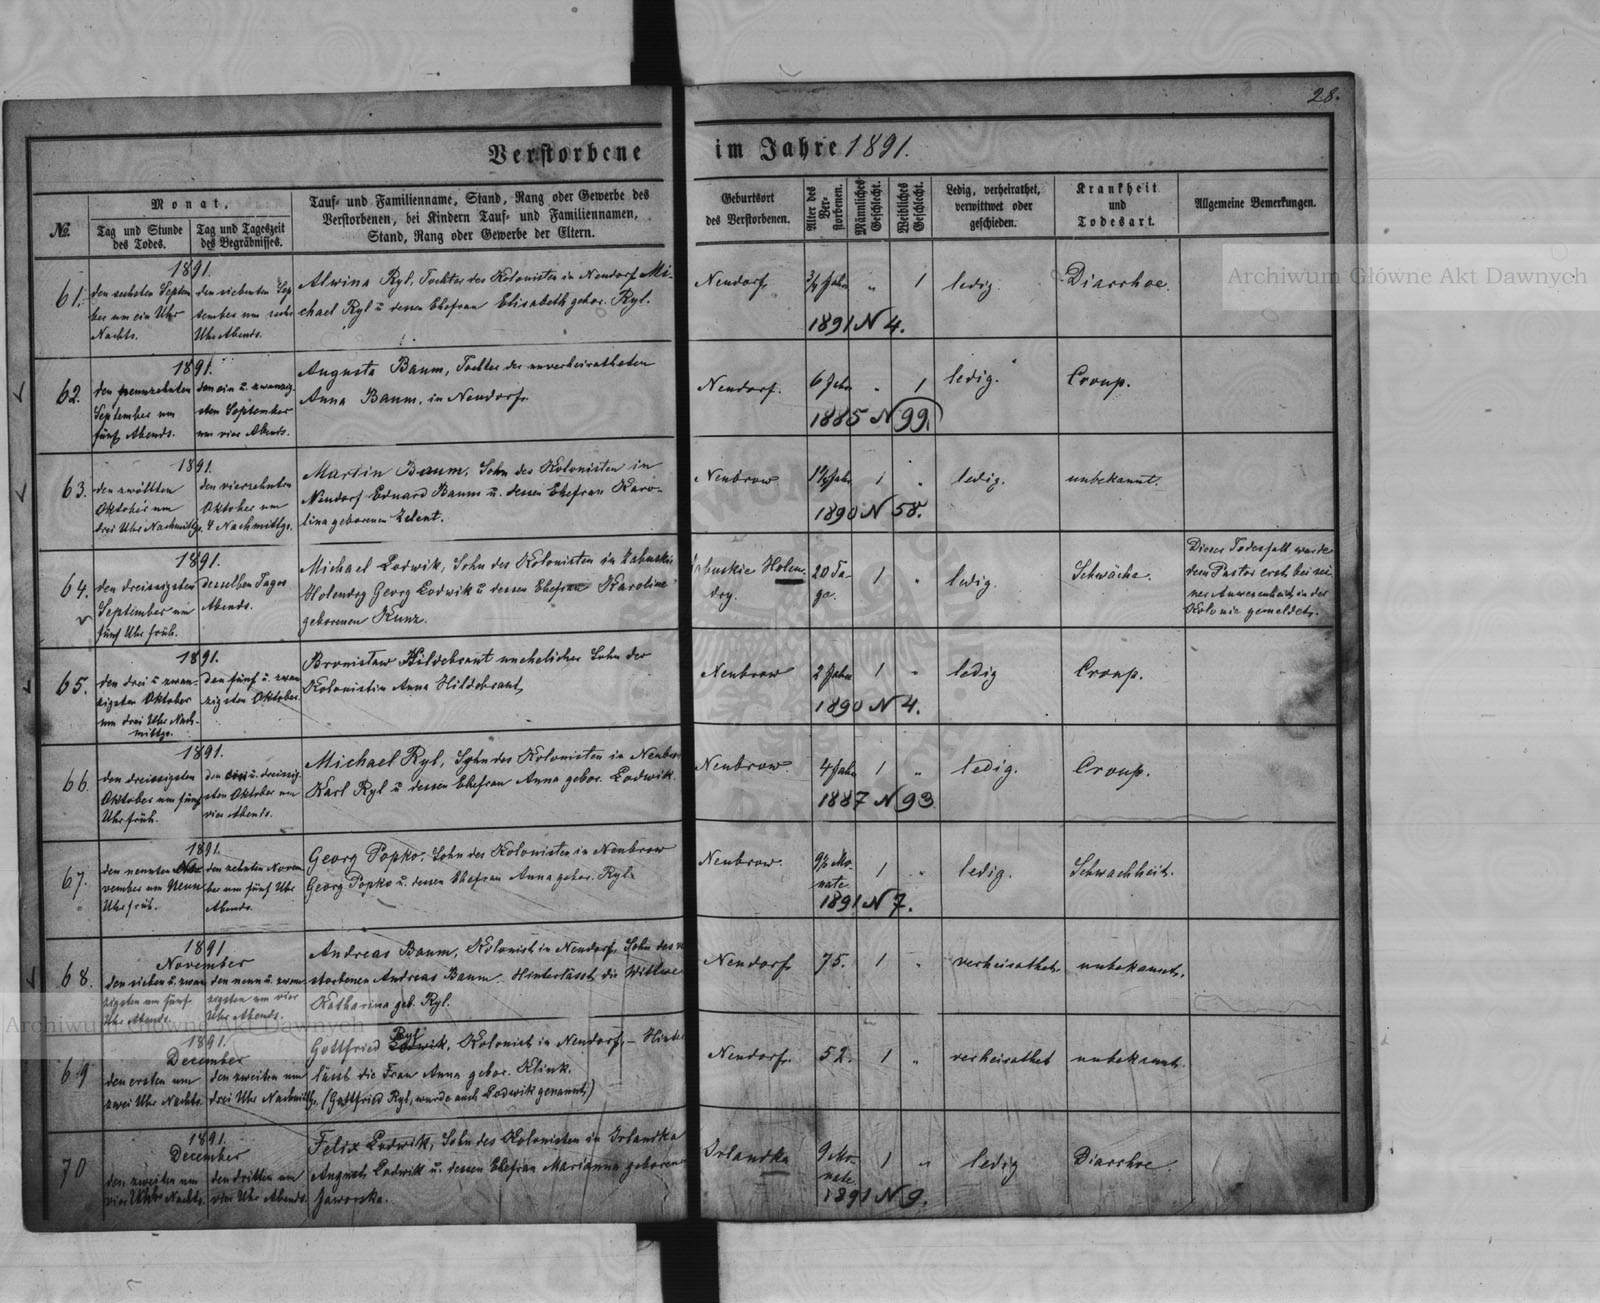 28.
Verstorbene im Jahre 1891.
№.
Monat,
Tag und Stunde des Todes.
Tag und Tageszeit des Begräbnisses.
Tauf- und Familienname, Stand, Rang oder Gewerbe des
Verstorbenen, bei Kindern Tauf- und Familiennamen,
Stand, Rang oder Gewerbe der Eltern.
Geburtsort
des Verstorbenen.
Alter des Verstorbenen.
Männliches Geschlecht.
Weibliches Geschlecht.
Ledig, verheirathet,
verwittwet oder
geschieden.
Krankheit
und
Todesart.
Allgemeine Bemerkungen.
Archiwum Główne Akt Dawnych
61.
1891.
den sechsten Septem
ber um ein Uhr
Nachts.
den siebenten Sep
tember um sechs
Uhr Abends.
Alwina Ryl, Tochter des Kolonisten in Neudorf Mi-
chael Ryl u dessen Ehefrau Elisabeth gebor. Ryl.
Neudorf
3/4 Jahr
„
1
ledig.
Diarrhoe.
1891 N 4.
62.
1891.
den neunzehnten
September um
fünf Abends.
den ein u. zwanzig-
sten September
um vier Abends.
Augusta Baum, Tochter der unverheiratheten
Anna Baum, in Neudorf.
Neudorf.
6 Jahr
„
1
ledig.
Croup.
1885 N 99.
63.
1891.
den zwölften
Oktober um
drei Uhr Nachmittgs.
den vierzehnten
Oktober um
4 Nachmittgs.
Martin Baum, Sohn des Kolonisten in
Neudorf Eduard Baum u. dessen Ehefrau Karo-
lina geborenen Zelent.
Neubrow
1½ Jahr
1
„
ledig.
unbekannt.
1890 N 58.
64.
1891.
den dreissigsten
September um
fünf Uhr früh.
desselben Tages
Abends.
Michael Lodwik, Sohn des Kolonisten in Zabuskie
Holendry Georg Lodwik u dessen Ehefrau Karoline
geborenen Kunz.
abuskie Holen-
dry.
20 Ta-
ge.
1
„
ledig.
Schwäche.
Dieser Todesfall wurde
dem Pastor erst bei sei
ner Anwesenheit in der
Kolonie gemeldet.
65.
1891.
den drei u zwan-
zigsten Oktober
um drei Uhr Nach-
mittgs.
den fünf u. zwan
zigsten Oktober
Bronisław Hildebrant unehelicher Sohn der
Kolonistin Anna Hildebrant
Neubrow
2 Jahr
1
„
ledig
Croup.
1890 N 4.
66.
1891.
den dreissigsten
Oktober um fünf
Uhr früh.
den ein u. dreissig-
sten Oktober um
vier Abends.
Michael Ryl, Sohn des Kolonisten in Neubro
Karl Ryl u dessen Ehefrau Anna gebor. Lodwik.
Neubrow.
4 Jahr
1
„
ledig.
Croup.
1887 N 93
67.
1891.
den neunten No-
vember um Neun
Uhr früh.
den zehnten Novem
ber um fünf Uhr
Abends.
Georg Popko, Sohn des Kolonisten in Neubrow
Georg Popko u. dessen Ehefrau Anna gebor. Ryl.
Neubrow.
9½ Mo-
nate
1
„
ledig.
Schwachheit.
1891 N 7.
68.
1891
November
den sieben u. zwan
zigsten um fünf
Uhr Abends.
den neun u. zwan
zigsten um vier
Uhr Abends.
Andreas Baum, Kolonist in Neudorf, Sohn des ve
storbenen Andreas Baum. Hinterlässt die Wittwe
Katharina geb. Ryl.
Neudorf
75.
1
„
verheirathet.
unbekannt.
Archiwum Główne Akt Dawnych
69
1891.
December
den ersten um
zwei Uhr Nachts.
den zweiten um
drei Uhr Nachmittgs.
Gottfried Ryl, Kolonist in Neudorf, – Hinter
lässt die Frau Anna gebor. Klink.
(Gottfried Ryl, wurde auch Lodwik genannt)
Neudorf.
52.
1
„
verheirathet
unbekannt.
70
1891.
December
den zweiten um
vier Uhr Nachts.
den dritten um
vier Uhr Abends.
Felix Lodwik, Sohn des Kolonisten in Irlandka
August Lodwik u. dessen Ehefrau Marianna geborene
Jaworska.
Irlandka
9 Mo-
nate
1
„
ledig
Diarrhoe.
1891 N 9.